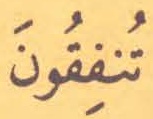 تُنفِقُونَ